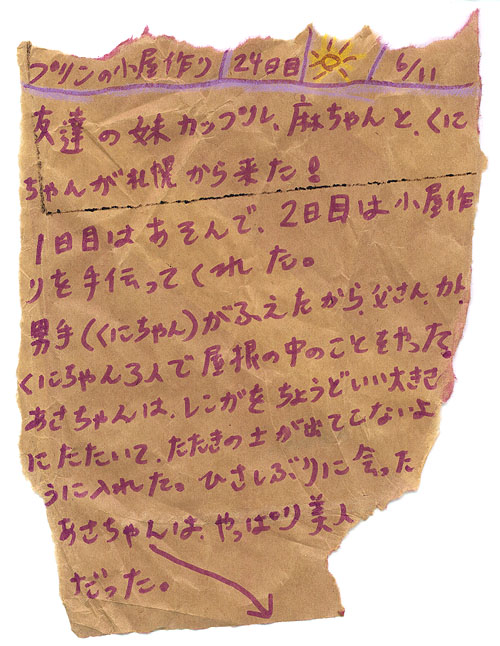 プリンの小屋作り 24日目 6/11
友達の妹カップル、麻ちゃんと、くに
ちゃんが札幌から来た!
1日目はあそんで、2日目は小屋作
りを手伝ってくれた。
男手(くにちゃん)がふえたから、父さん、か、
くにちゃん3人で屋根の中のことをやった。
あさちゃんは、レンガをちょうどいい大きさ
にたたいて、たたきの土が出てこないよ
うに入れた。ひさしぶりに会った
あさちゃんは、やっぱり美人
だった。